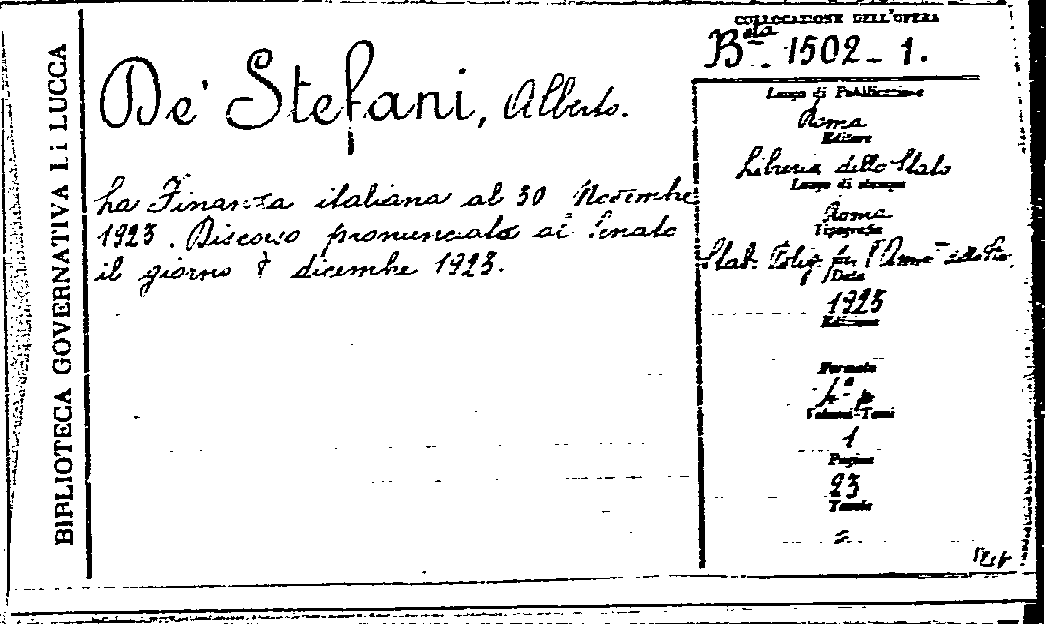 BIBLIOTECA GOVERNATIVA DI LUCCA
De' Stefani, Alberto.
La Finanza italiana al 30 Novembre
1923. Discorso pronunciato al Senato
il giorno 8 dicembre 1923.
COLLOCAZIONE DELL'OPERA
Bta 1502-1.
Luogo di Pubblicazione
Roma
Editore
Libreria dello Stato
Luogo di stampa
Roma
Tipografia
Stab. Polig. per l'Amm dello Sta.
Data
1923
Edizione
Formato
4°
Volumi-Tomi
1
Pagine
23
Tavole
=